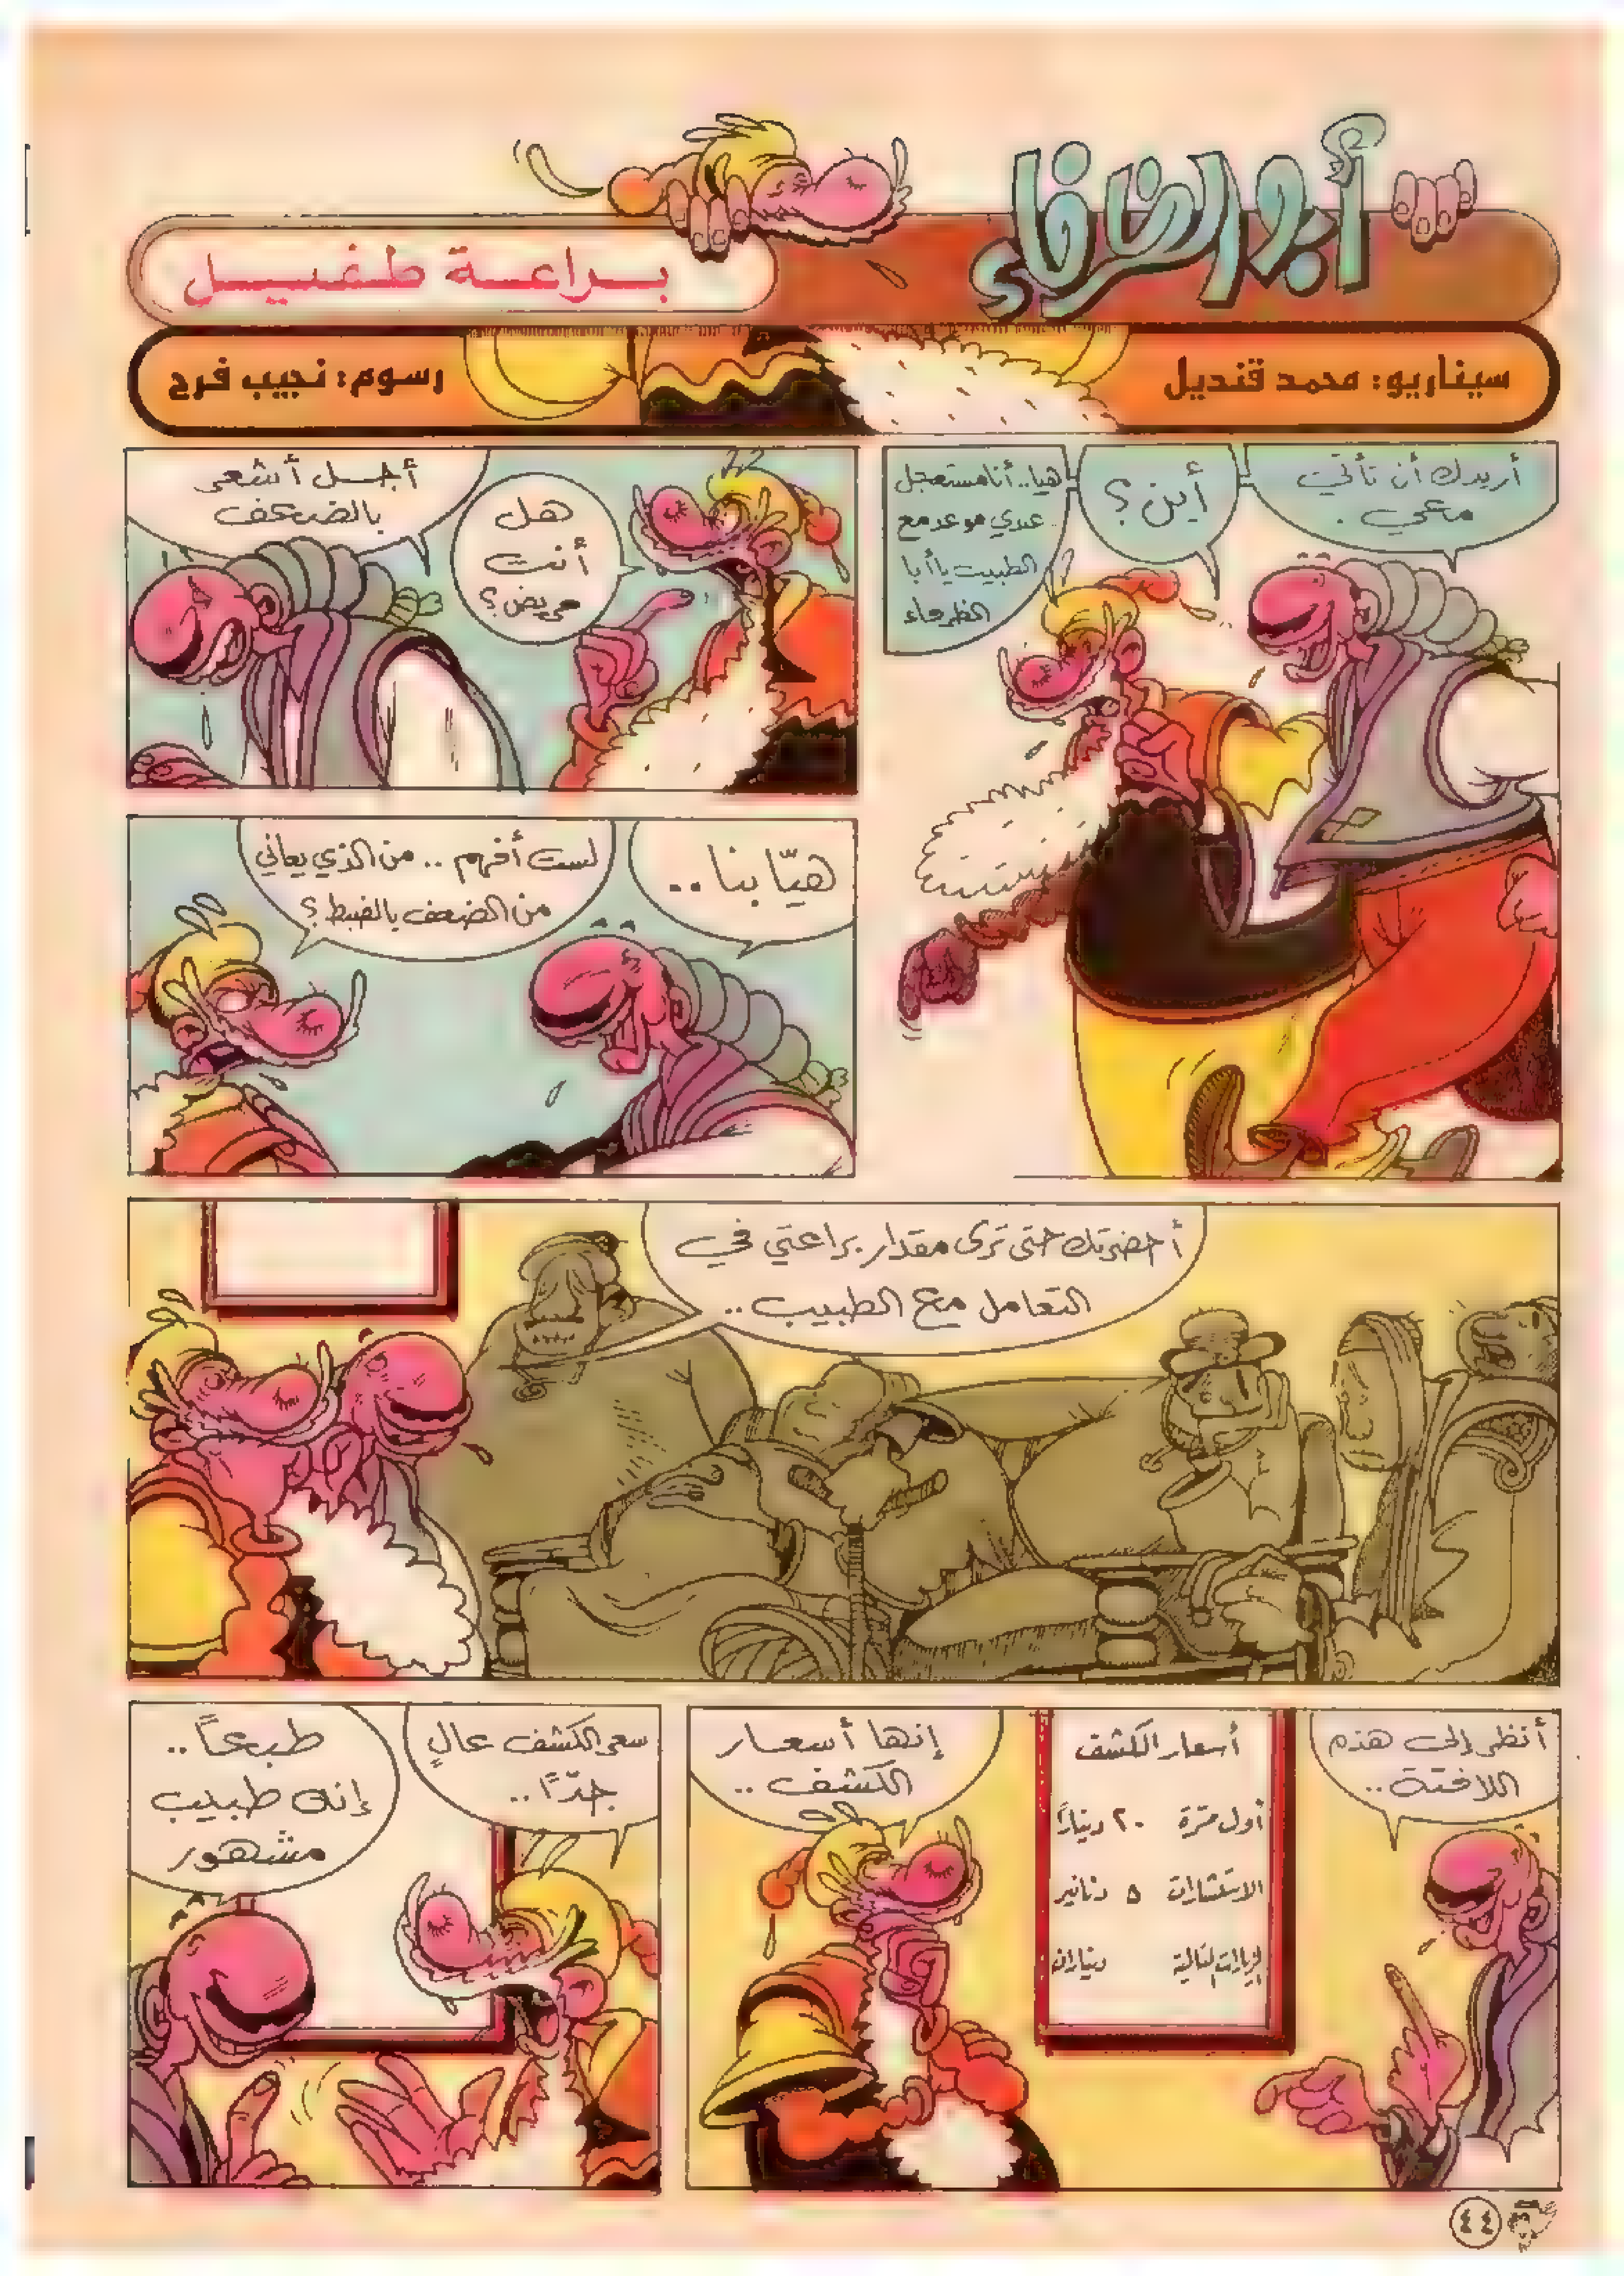 أبو الظرفاء
براعة طفيل
سيناريو: محمد قنديل
رسوم: نجيب فرح
أريدك أن تأتي
معي.
أين؟
هيا.. أنا مستعجل
عندي موعد مع
الطبيب يا أبا
الظرفاء
هل
أنت
مريض؟
أجل أشعر
بالضعف
هيّا بنا..
لست أفهم.. من الذي يعاني
من الضعف بالضبط؟
أحضرتك حتى ترى مقدار براعتي في
التعامل مع الطبيب..
أنظر إلى هذه
اللافتة..
أسعار الكشف
أول مرّة ٢٠ دينارًا
الاستشارات ٥ دنانير
الزيارات التالية ديناران
إنها أسعار
الكشف..
سعر الكشف عالٍ
جدًّا..
طبعاً..
إنه طبيب
مشهور
٤٤